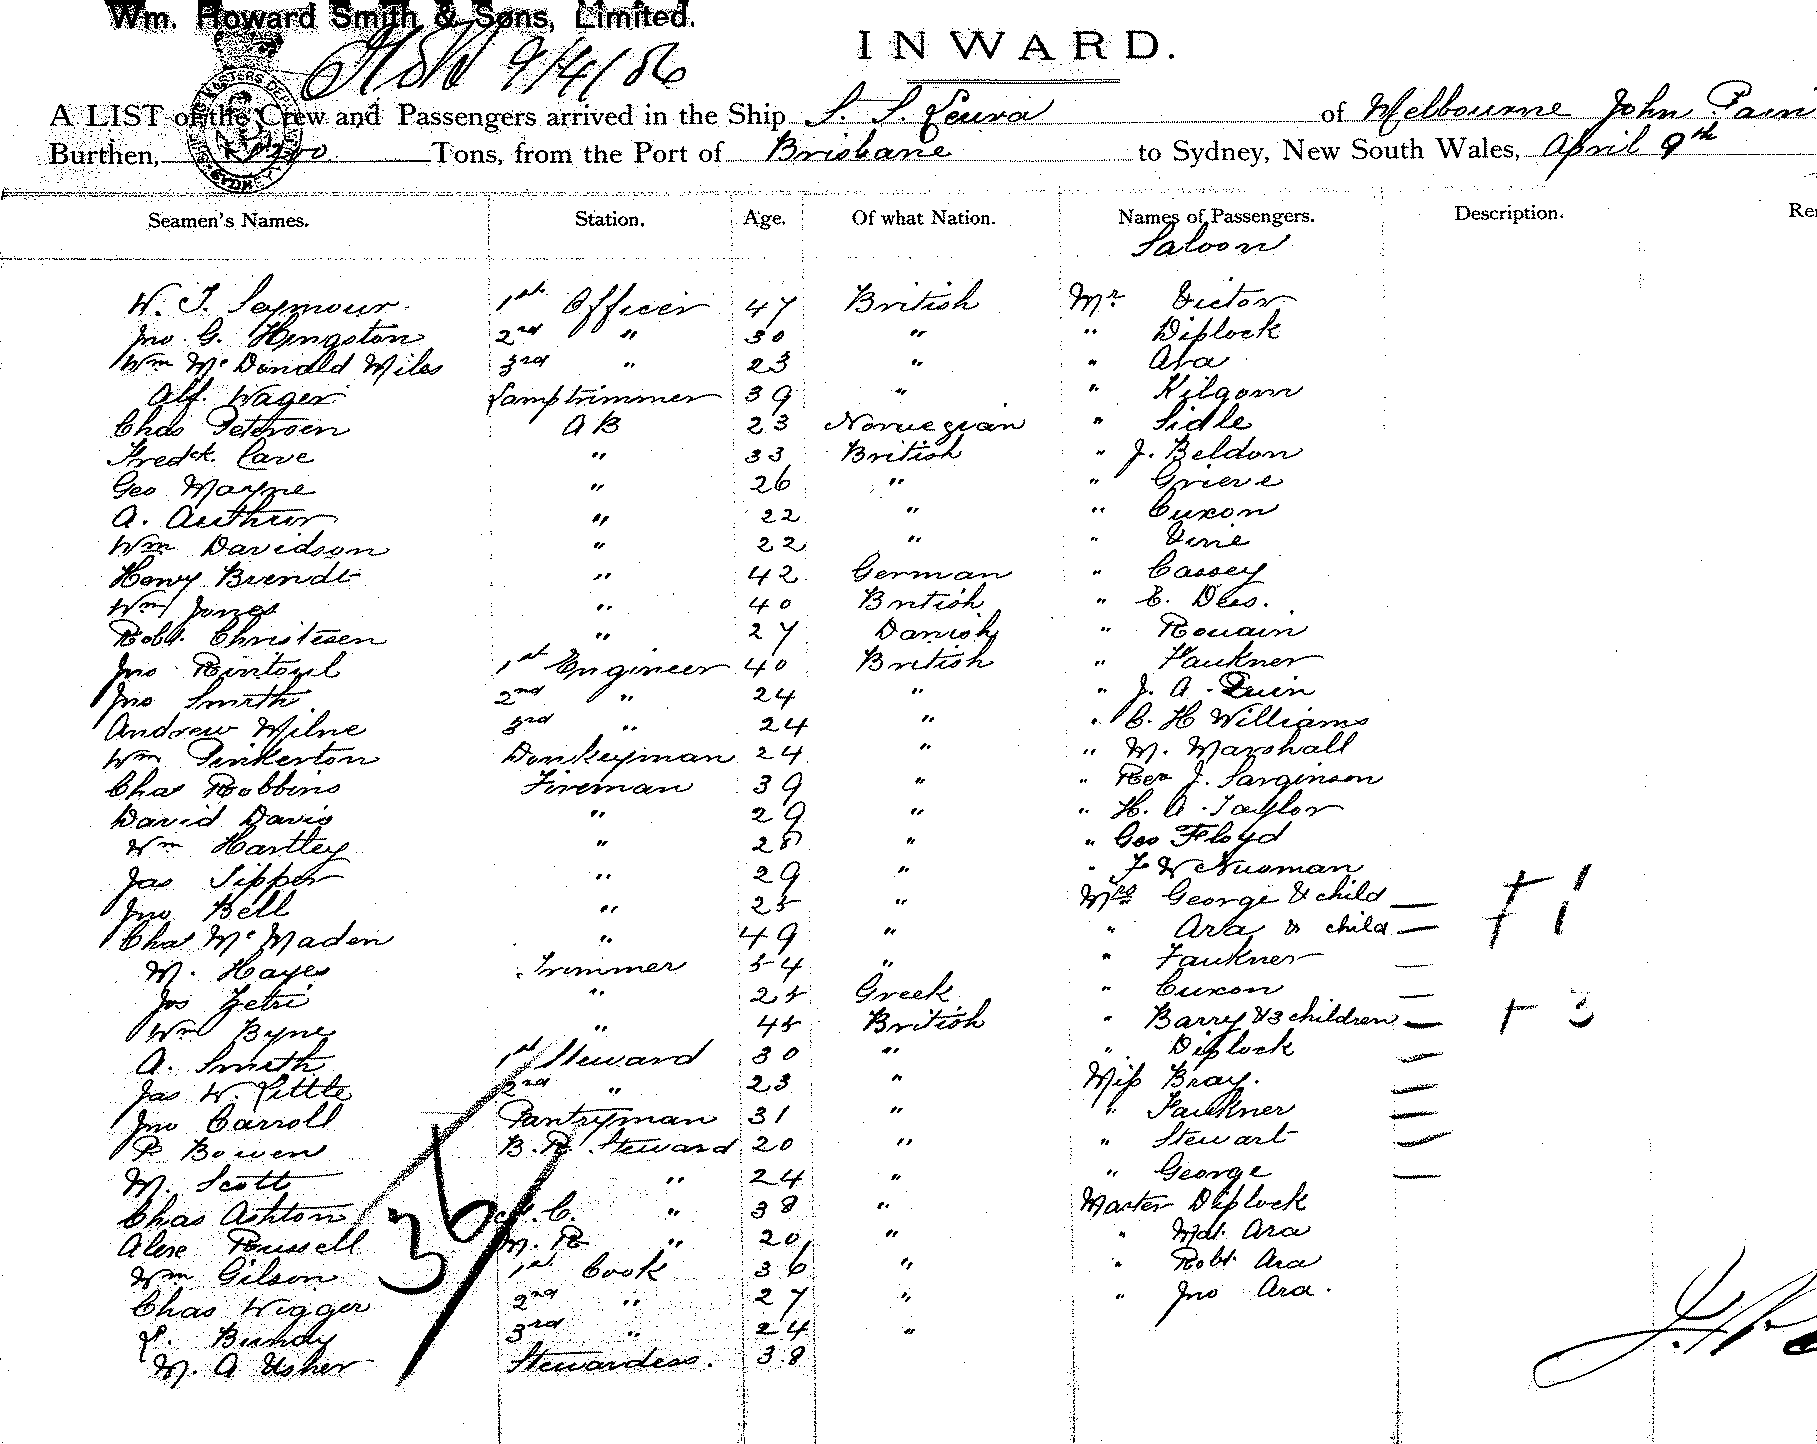 Wm. Howard Smith & Sons, Limited.
9/4/86
INWARD.
A LIST of the Crew and Passengers arrived in the Ship S. S. Leura of Melbourne John Pain
Burthen, Tons, from the Port of Brisbane to Sydney, New South Wales, April 9th
Seamen's Names. Station. Age. Of what Nation. Names of Passengers. Description.
Saloon
W. J. Seymour 1st Officer 47 British Mr Victor
Jno G. Hingston 2nd " 30 " " Diplock
Wm McDonald Miles 3rd " 23 " " Ara
Alf. Wager Lamptrimmer 39 " " Kilgom
Chas Petersen AB 23 Norwegian " Sidle
Fredck. Cave " 33 British " J. Beldon
Geo Mayne " 26 " " Grieve
A. Authur " 22 " " Cuxon
Wm Davidson " 22 " " Vine
Heny Brendt " 42 German " Cassey
Wm Jones " 40 British " E. Dees.
Robt. Christesen " 27 Danish " Rouain
Jno Rintoul 1st Engineer 40 British " Faukner
Jno Smith 2nd " 24 " " J. A. Quin
Andrew Milne 3rd " 24 " " C. H Williams
Wm Pinkerton Donkeyman 24 " " M. Marshall
Chas Robbins Fireman 39 " " Rev J. Sarginson
David Davis " 29 " " H. A. Taylor
Wm Hartley " 28 " " Geo Floyd
Jas Sipper " 29 " " F W Nusman
Jno Bell " 25 " Mrs George & child — + 1
Chas McMaden " 49 " " Ara & child — 1
M. Hayes Trimmer 54 " " Faukner —
Jos Zetri " 25 Greek " Cuxon —
Wm Byne " 45 British " Barry & 3 children — + 3
A. Smith 1st Steward 30 " " Diplock —
Jas W. Little 2nd " 23 " Miss Bray. —
Jno Carroll Pantryman 31 " " Faukner —
P Bowen B. R. Steward 20 " " Stewart —
M. Scott " 24 " " George —
Chas Ashton C. " 38 " Master Diplock
Alex Russell M. R " 20 " " Ara
Wm Gilson 1st Cook 36 " " Robt Ara
Chas Wigger 2nd " 27 " " Jno Ara.
Bundy 3rd " 24 "
M. A Usher Stewardess. 38
36